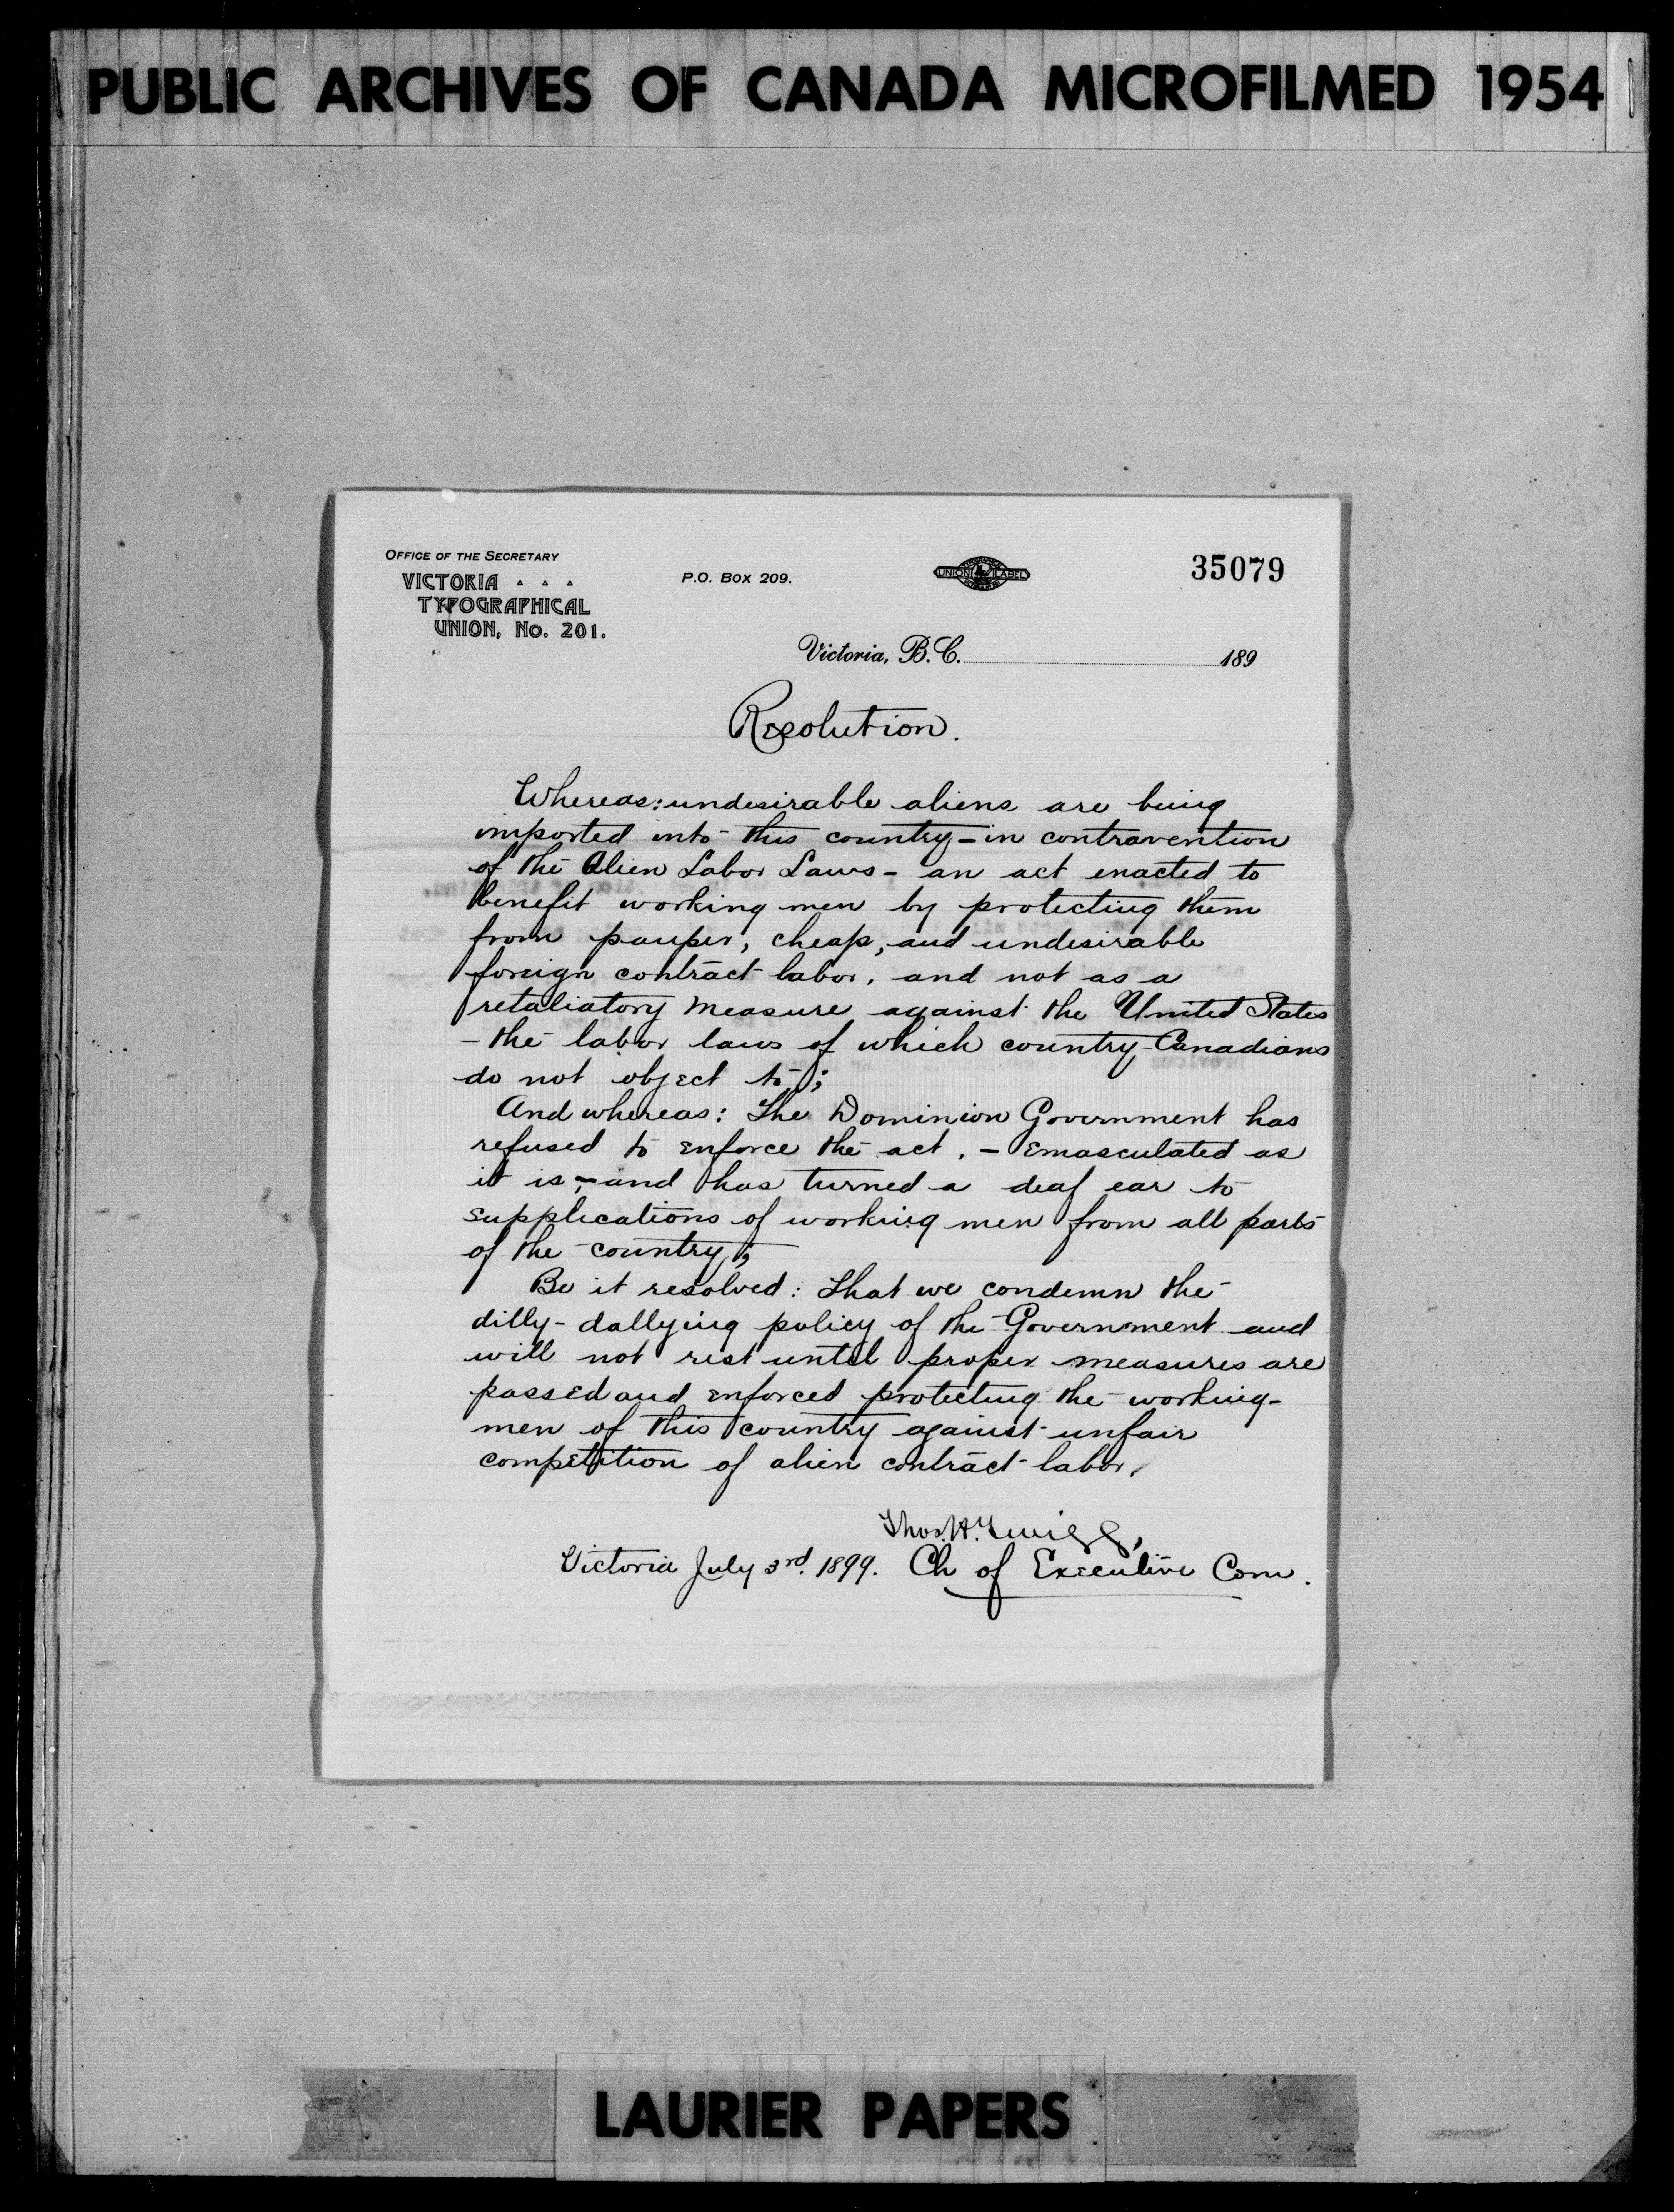 PUBLIC ARCHIVES OF CANADA MICROFILMED 1954
OFFICE OF THE SECRETARY
VICTORIA
TYPOGRAPHICAL
UNION, No. 201.
P.O. BOX 209.
UNION LABEL
35079
Victoria, B.C. 189
Resolution.
Whereas: undesirable aliens are being
imported into this country - in contravention
of the Alien Labor Laws - an act enacted to
benefit working men by protecting them
from pauper, cheap, and undesirable
foreign contract labor, and not as a
retaliatory measure against the United States
- the labor laws of which country Canadians
do not object to;
And whereas: The Dominion Government has
refused to enforce the act, - emasculated as
it is, - and has turned a deaf ear to
supplications of working men from all parts
of the country;
Be it resolved: That we condemn the
dilly-dallying policy of the Government and
will not rest until proper measures are
passed and enforced protecting the working-
men of this country against unfair
competition of alien contract labor.
Thos. H. Twigg,
Victoria July 3rd. 1899. Ch of Executive Com.
LAURIER PAPERS